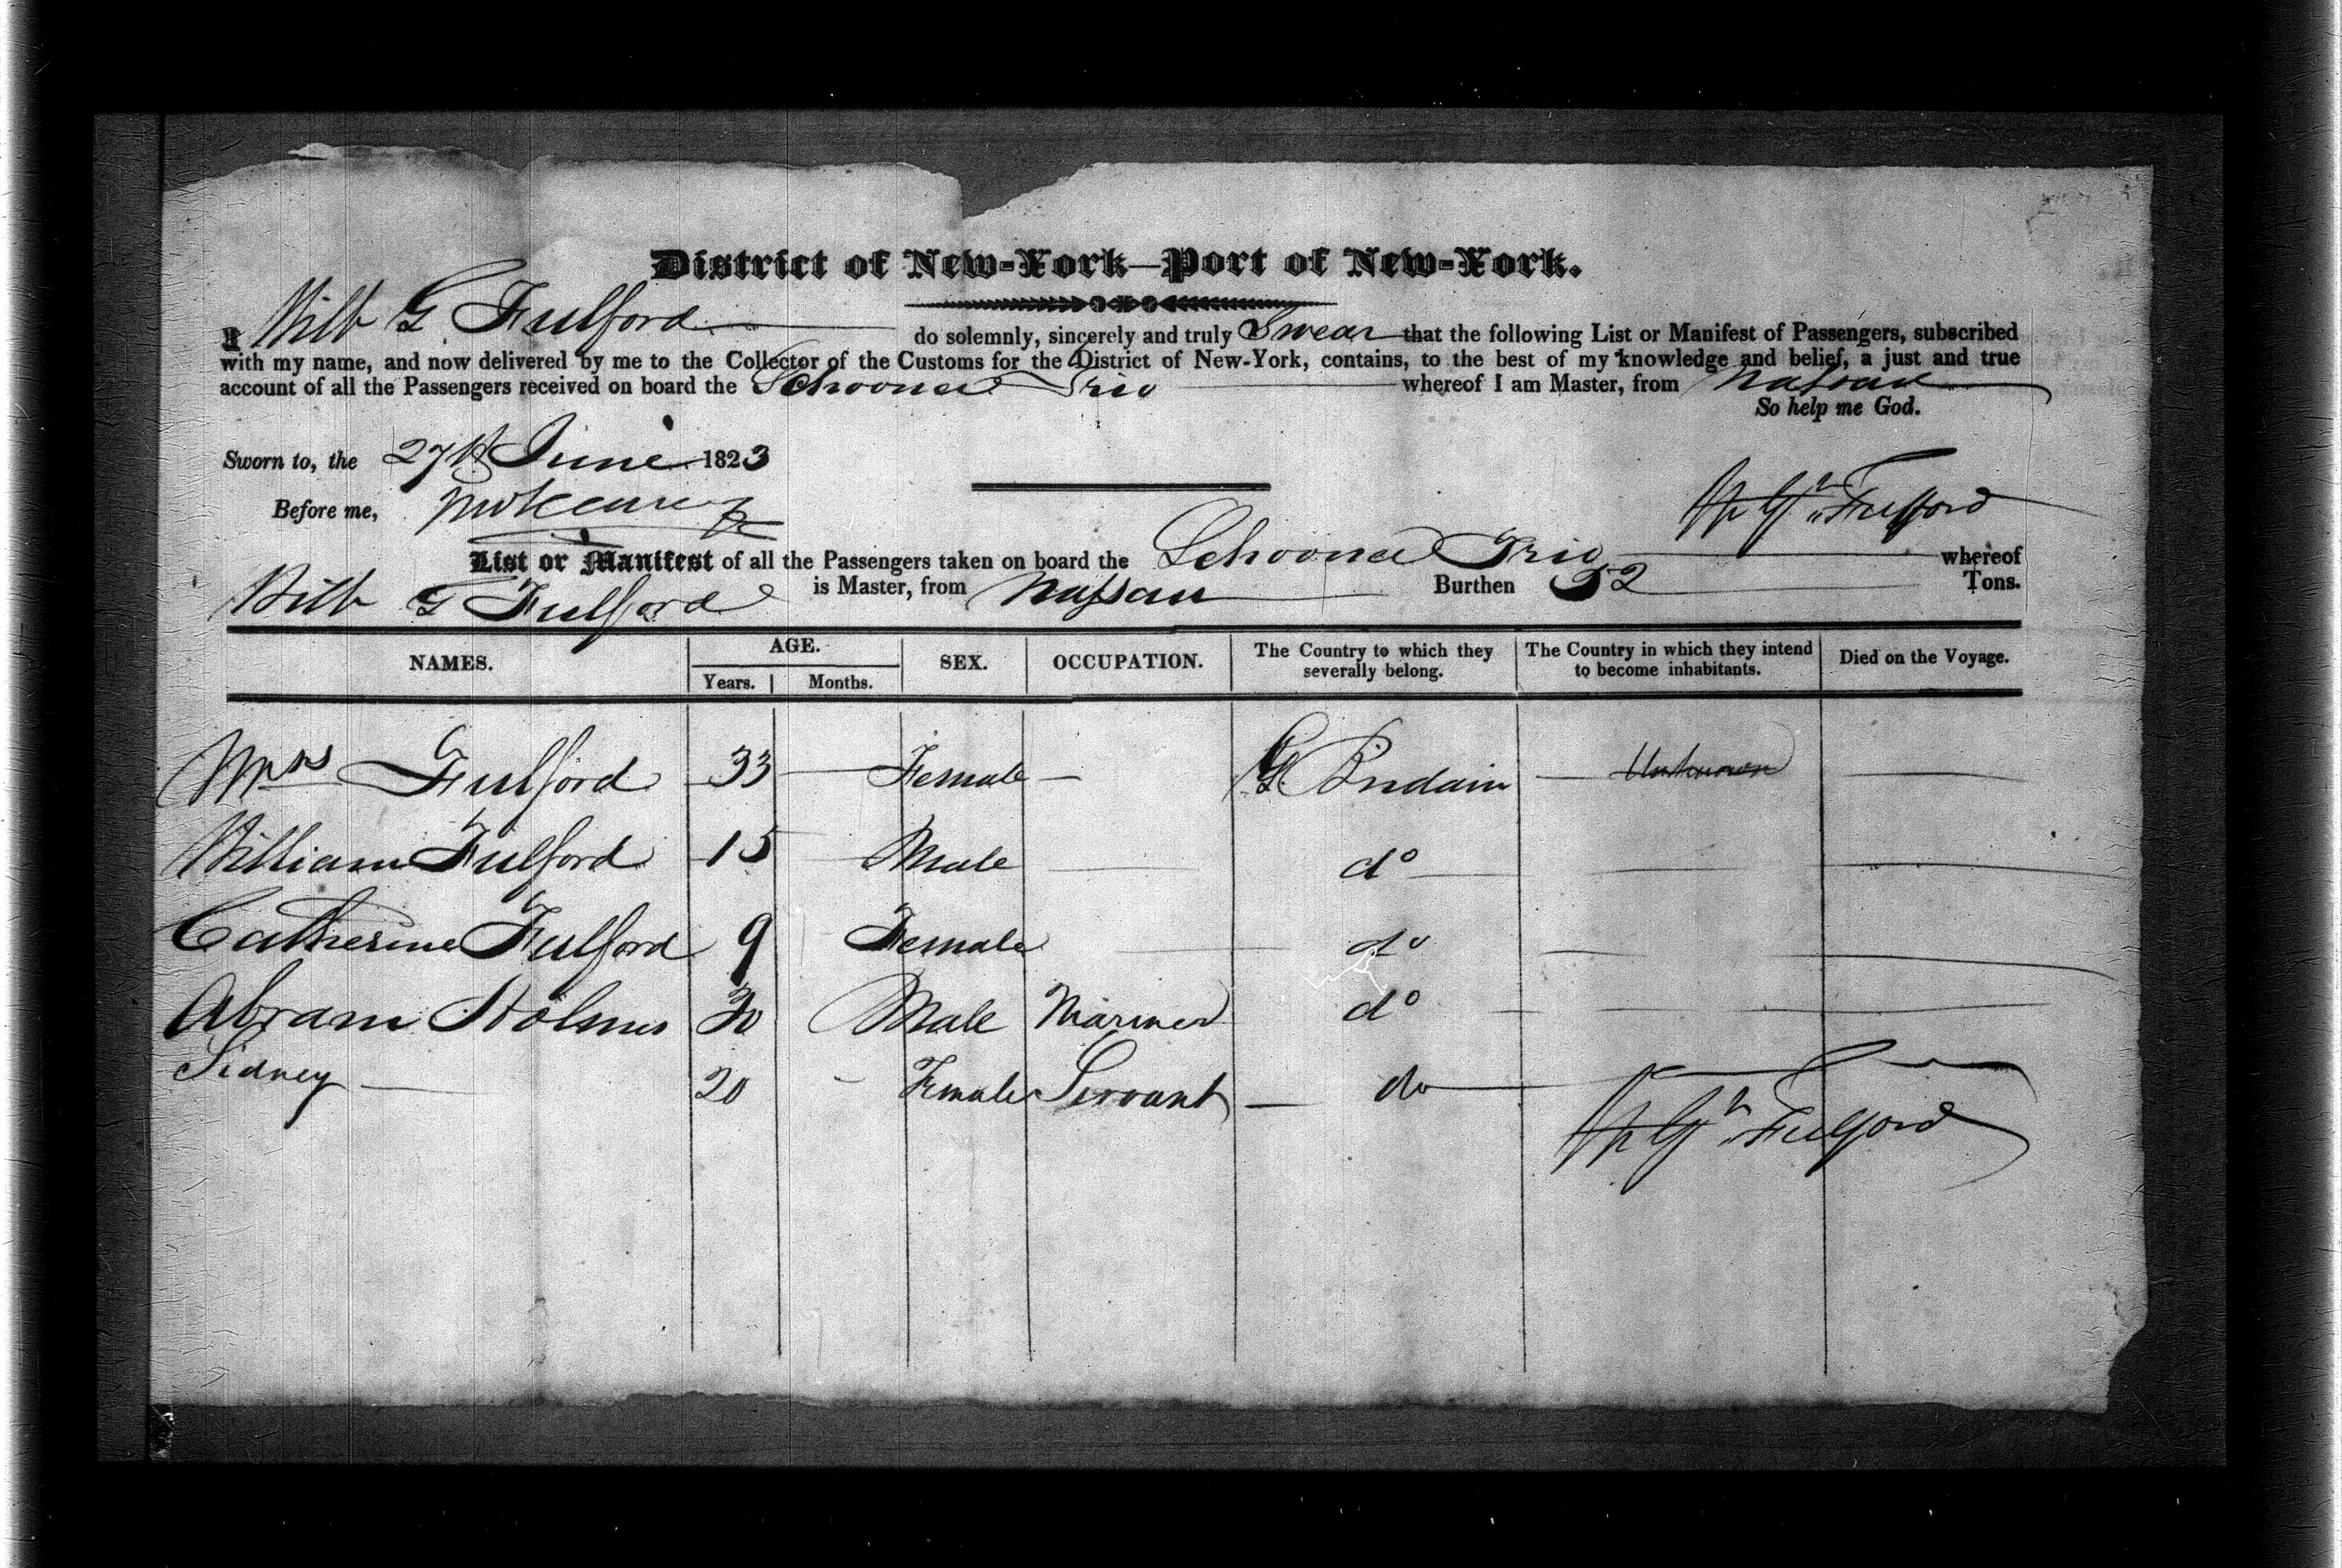 District of New-York—Port of New-York.
I Will G Fulford do solemnly, sincerely and truly Swear that the following List or Manifest of Passengers, subscribed
with my name, and now delivered by me to the Collector of the Customs for the District of New-York, contains, to the best of my knowledge and belief, a just and true
account of all the Passengers received on board the Schooner Trio whereof I am Master, from Nassau
So help me God.
Sworn to, the 27th June 1823
Before me,
Fulford
List or Manifest of all the Passengers taken on board the Schooner Trio whereof
Will G Fulford is Master, from Nassau Burthen 52 Tons.
NAMES. AGE. SEX. OCCUPATION. The Country to which they severally belong. The Country in which they intend to become inhabitants. Died on the Voyage.
Years. Months.
Mrs Fulford 33 Female G Britain Unknown
William Fulford 15 Male do
Catherine Fulford 9 Female do
Abram Holmes 30 Male Mariner do
Sidney 20 Female Servant do
Fulford